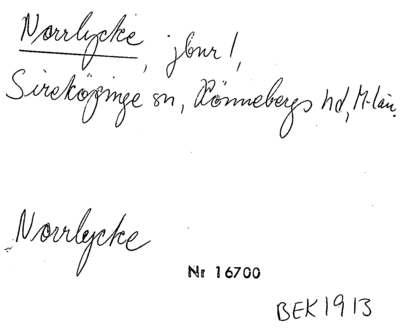 Norrlycke, jbnr 1,
Sireköpinge sn, Rönnebergs hd, M-län.
Norrlycke
Nr 16700
BEK1913